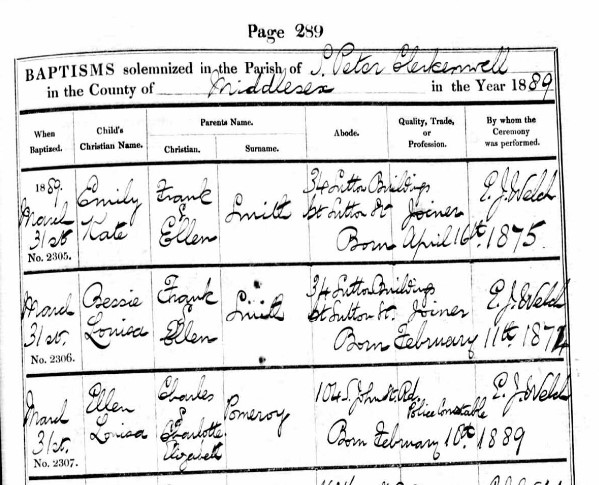 Page 289
BAPTISMS solemnized in the Parish of S. Peter Clerkenwell
in the County of Middlesex in the Year 1889
When Baptized. Child's Christian Name. Parents Name. Abode. Quality, Trade, or Profession. By whom the Ceremony was performed.
Christian. Surname.
1889. Emily Frank 34 Sutton Buildings E. J. Welch
March & Smith Sutton St Joiner
31st Kate Ellen Born April 16th 1875.
No. 2305.
March Bessie Frank 34 Sutton Buildings E. J. Welch
31st. Louisa & Smith Sutton St. Joiner
Ellen Born February 11th 1874
No. 2306.
March Ellen Charles Pomeroy 104 S. John St. Rd. E. J. Welch
31st. Louisa & Police Constable
Charlotte Born February 16th 1889
Elizabeth
No. 2307.